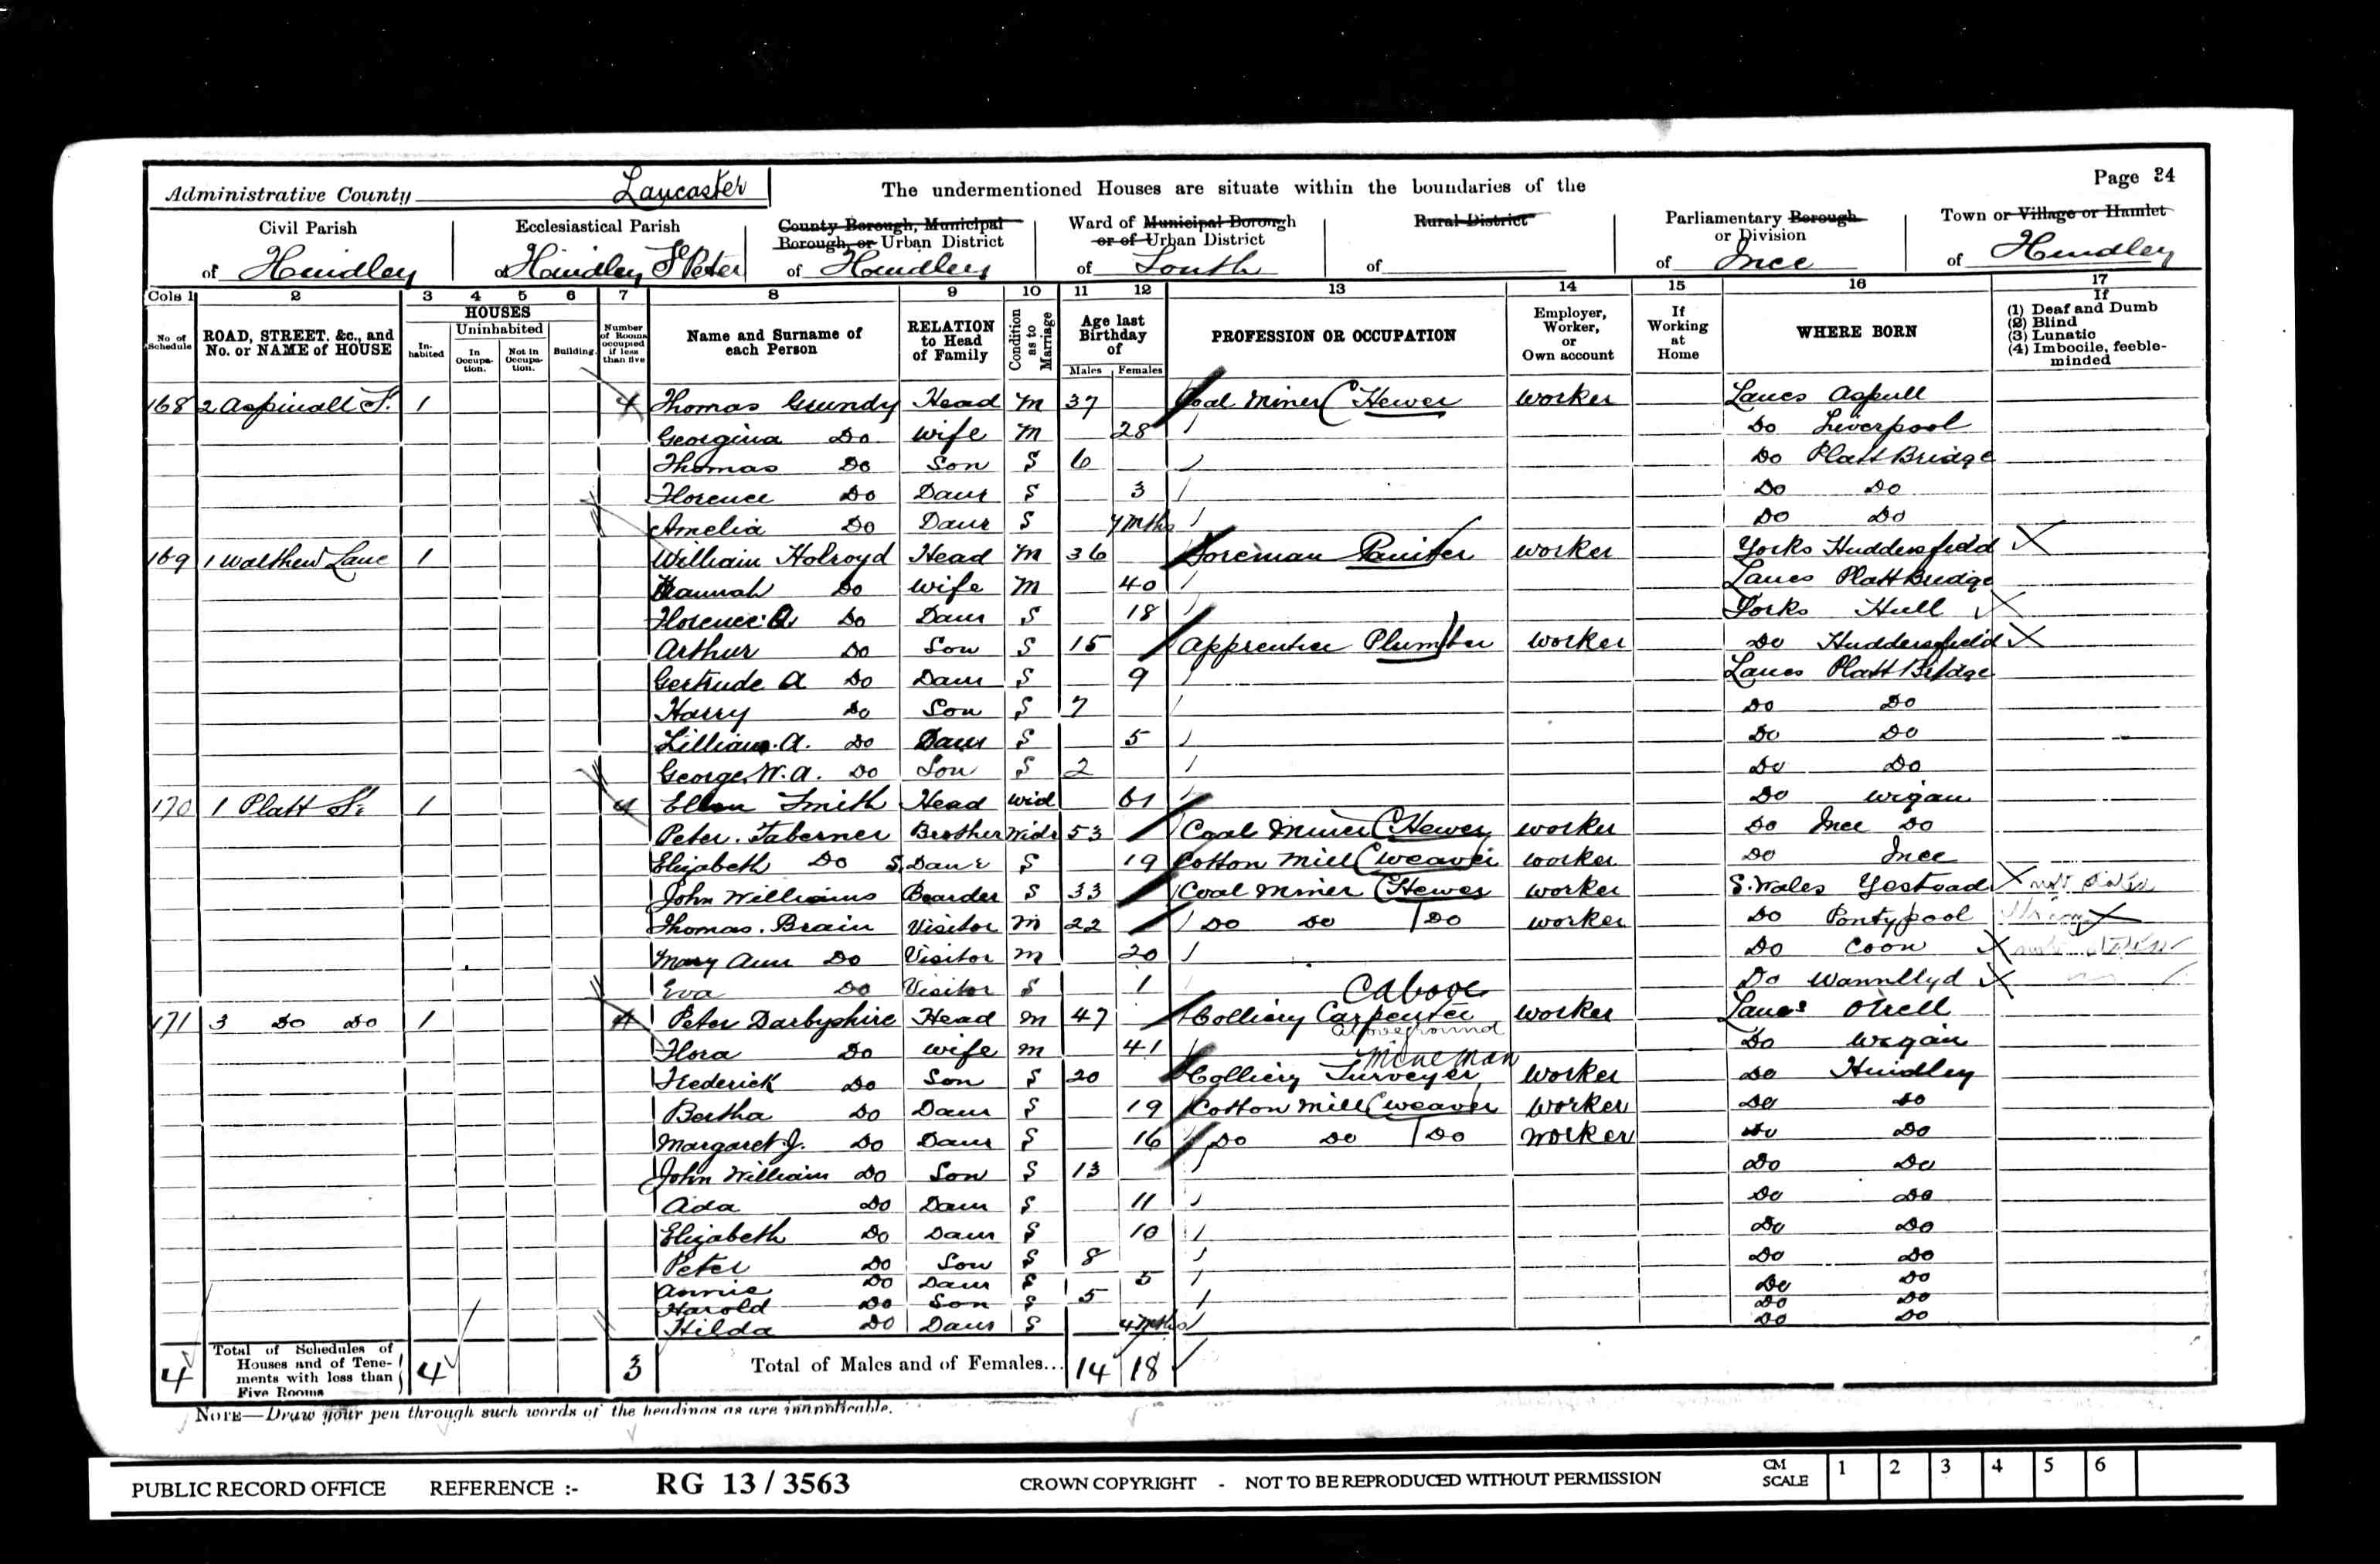 Page 24
Administrative County Lancaster The undermentioned Houses are situate within the boundaries of the
Civil Parish Ecclesiastical Parish County Borough, Municipal Borough, or Urban District Ward of Municipal Borough or of Urban District Rural District Parliamentary Borough or Division Town or Village or Hamlet
of Hindley of Hindley St Peter of Hindley of South of of Ince of Hindley
Cols 1 2 3 4 5 6 7 8 9 10 11 12 13 14 15 16 17
No of Schedule
ROAD, STREET, &c., and No. or NAME of HOUSE
HOUSES
Inhabited
Uninhabited
In Occupation.
Not in Occupation.
Building.
Number of Rooms occupied if less than five
Name and Surname of each Person
RELATION to Head of Family
Condition as to Marriage
Age last Birthday of
Males Females
PROFESSION OR OCCUPATION
Employer, Worker, or Own account
If Working at Home
WHERE BORN
If
(1) Deaf and Dumb
(2) Blind
(3) Lunatic
(4) Imbecile, feeble-minded
168 2 Aspinall St. 1 4 Thomas Grundy Head M 37 Coal Miner (Hewer worker Lancs Aspull
Georgina Do wife M 28 Do Liverpool
Thomas Do Son S 6 Do Platt Bridge
Florence Do Daur S 3 Do Do
Amelia Do Daur S 7 mths Do Do
169 1 Walthew Lane 1 William Holroyd Head M 36 Foreman Painter worker Yorks Huddersfield
Hannah Do wife M 40 Lancs Platt Bridge
Florence A Do Daur S 18 Yorks Hull
Arthur Do Son S 15 Apprentice Plumber worker Do Huddersfield
Gertrude A Do Daur S 9 Lancs Platt Bridge
Harry Do Son S 7 Do Do
Lillian. A. Do Daur S 5 Do Do
George W. A. Do Son S 2 Do Do
170 1 Platt St. 1 4 Ellen Smith Head wid 61 Do Wigan
Peter. Taberner Brother Widr 53 Coal Miner (Hewer worker Do Ince Do
Elizabeth Do S. Daur S 19 Cotton Mill (weaver worker Do Ince
John Williams Boarder S 33 Coal Miner (Hewer worker S. Wales
Thomas. Brain Visitor M 22 Do Do Do worker Do Pontypool
Mary Ann Do Visitor M 20 Do Coon
Eva Do Visitor S 1 Do Wannllyd
(above
171 3 Do Do 1 4 Peter Darbyshire Head M 47 Colliery Carpenter worker Lancs Orrell
aboveground
Flora Do wife M 41 Do Wigan
Mine Man
Frederick Do Son S 20 Colliery Surveyer worker Do Hindley
Bertha Do Daur S 19 Cotton Mill (weaver worker Do Do
Margaret J. Do Daur S 16 Do Do Do worker Do Do
John William Do Son S 13 Do Do
Ada Do Daur S 11 Do Do
Elizabeth Do Daur S 10 Do Do
Peter Do Son S 8 Do Do
Annie Do Daur S 5 Do Do
Harold Do Son S 5 Do Do
Hilda Do Daur S 4 mths Do Do
4 Total of Schedules of Houses and of Tenements with less than Five Rooms 4 3 Total of Males and of Females... 14 18
NOTE—Draw your pen through such words of the headings as are inapplicable.
PUBLIC RECORD OFFICE REFERENCE :- RG 13 / 3563 CROWN COPYRIGHT - NOT TO BE REPRODUCED WITHOUT PERMISSION CM SCALE 1 2 3 4 5 6